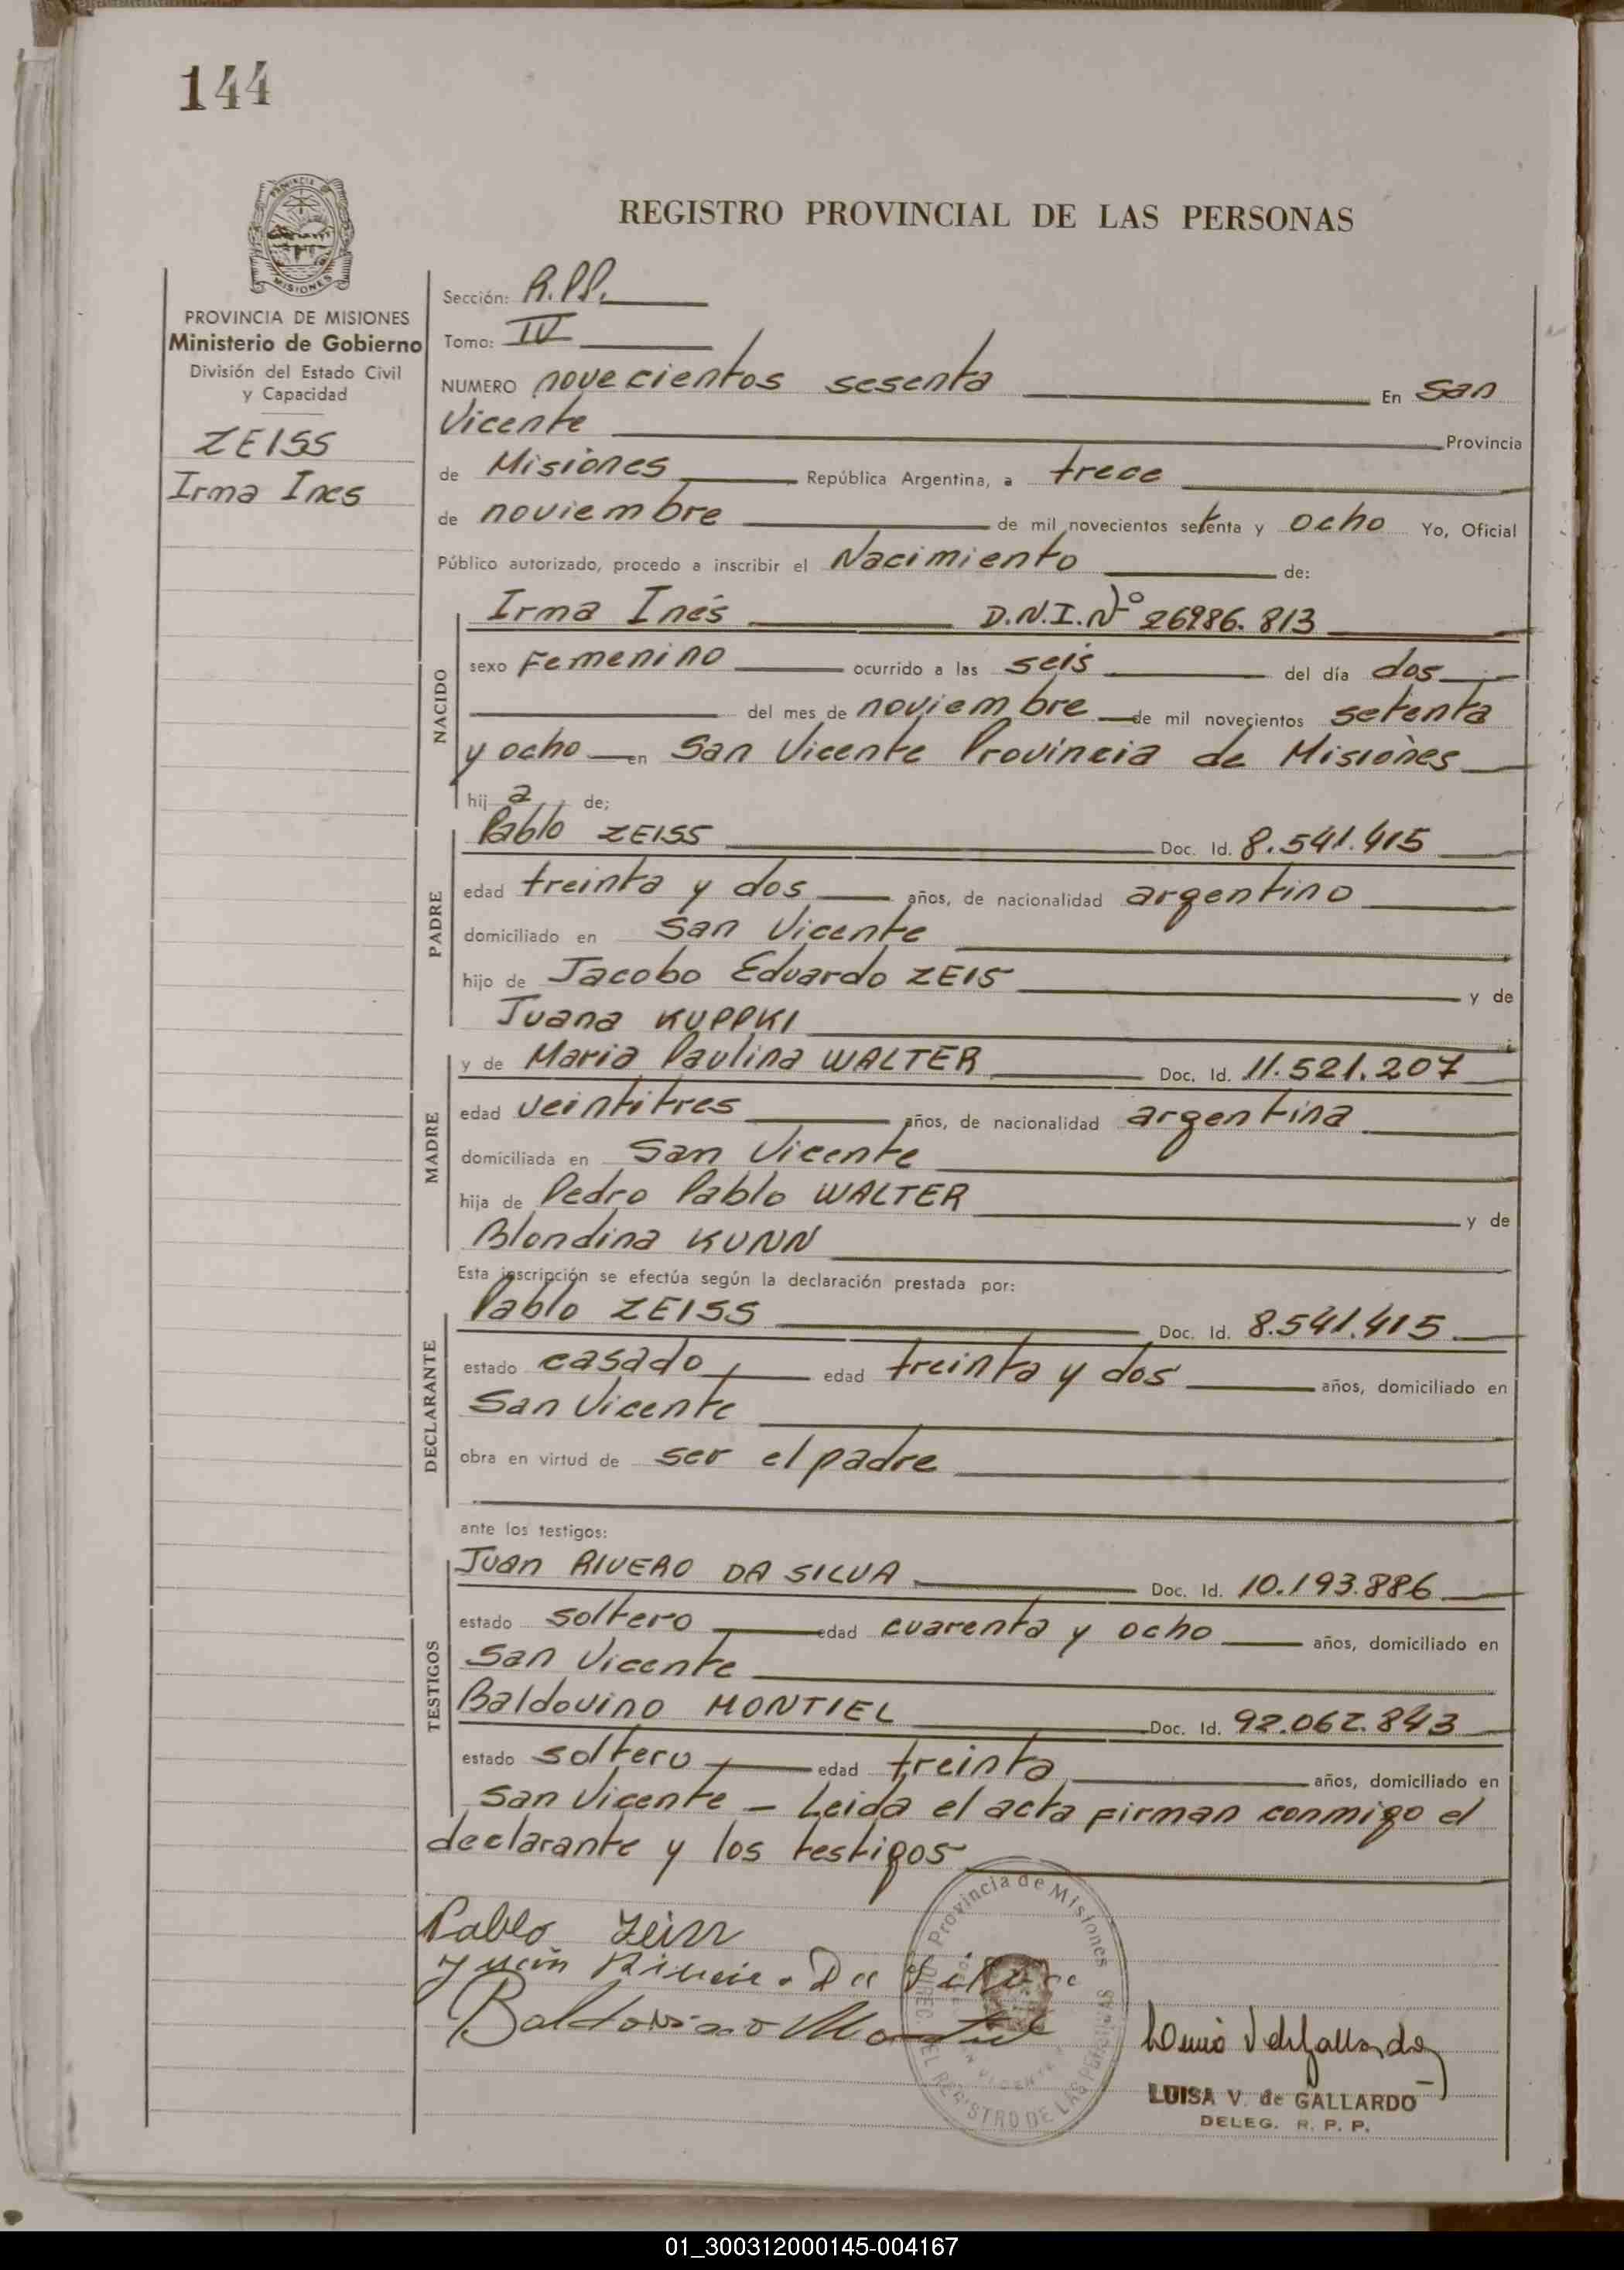 144
PROVINCIA DE MISIONES
REGISTRO PROVINCIAL DE LAS PERSONAS
PROVINCIA DE MISIONES
Ministerio de Gobierno
División del Estado Civil
y Capacidad
ZEISS
Irma Ines
Sección: R.P.P.
Tomo: IV
NUMERO novecientos sesenta En San
Vicente Provincia
de Misiones República Argentina, a trece
de noviembre de mil novecientos setenta y ocho Yo, Oficial
Público autorizado, procedo a inscribir el Nacimiento de:
NACIDO
Irma Inés D.N.I. Nº 26986.813
sexo Femenino ocurrido a las seis del día dos
del mes de noviembre de mil novecientos setenta
y ocho en San Vicente Provincia de Misiones
hij a de;
PADRE
Pablo ZEISS Doc. Id. 8.541.415
edad treinta y dos años, de nacionalidad argentino
domiciliado en San Vicente
hijo de Jacobo Eduardo ZEIS y de
Juana KUPPKI
MADRE
y de Maria Paulina WALTER Doc. Id. 11.521.207
edad veintitres años, de nacionalidad argentina
domiciliada en San Vicente
hija de Pedro Pablo WALTER y de
Blondina KUNN
Esta inscripción se efectúa según la declaración prestada por:
DECLARANTE
Pablo ZEISS Doc. Id. 8.541.415
estado casado edad treinta y dos años, domiciliado en
San Vicente
obra en virtud de ser el padre
ante los testigos:
TESTIGOS
Juan RIVERO DA SILVA Doc. Id. 10.193.886
estado soltero edad cuarenta y ocho años, domiciliado en
San Vicente
Baldovino MONTIEL Doc. Id. 92.062.843
estado soltero edad treinta años, domiciliado en
San Vicente – Leida el acta firman conmigo el
declarante y los testigos
Pablo Zeiss
Baldovino Montiel
Provincia de Misiones
DIREC. DEL REGISTRO DE LAS PERSONAS
LUISA V. de GALLARDO
DELEG. R. P. P.
01_300312000145-004167